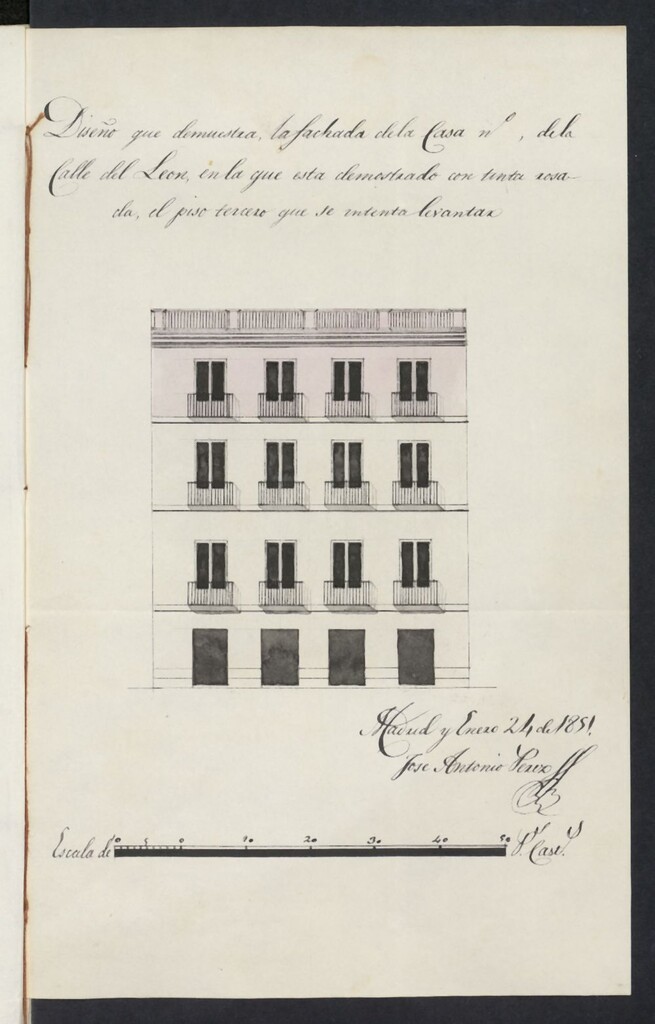 Diseño que demuestra, la fachada de la Casa nº , de la
Calle del Leon, en la que esta demostrado con tinta rosa-
da, el piso tercero que se intenta levantar
Madrid y Enero 24 de 1851.
Jose Antonio Perez
Escala de 10 5 0 10 20 30 40 50 P.s Cast.s